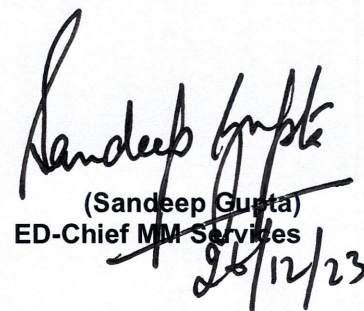 Sandeep Gupta
(Sandeep Gupta)
ED-Chief MM Services
26/12/23